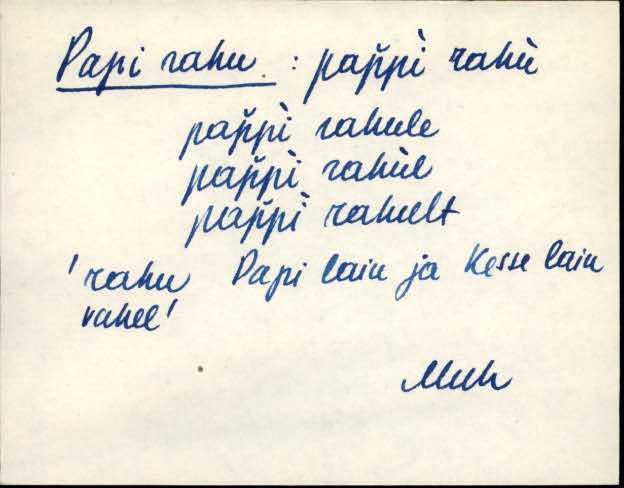 Papi rahu : pap̆pì rahù
pap̆pì rahule
pap̆pì rahùl
pap̆pì rahult
'rahu Papi laiu ja Kesse laiu
vahel'
Muh